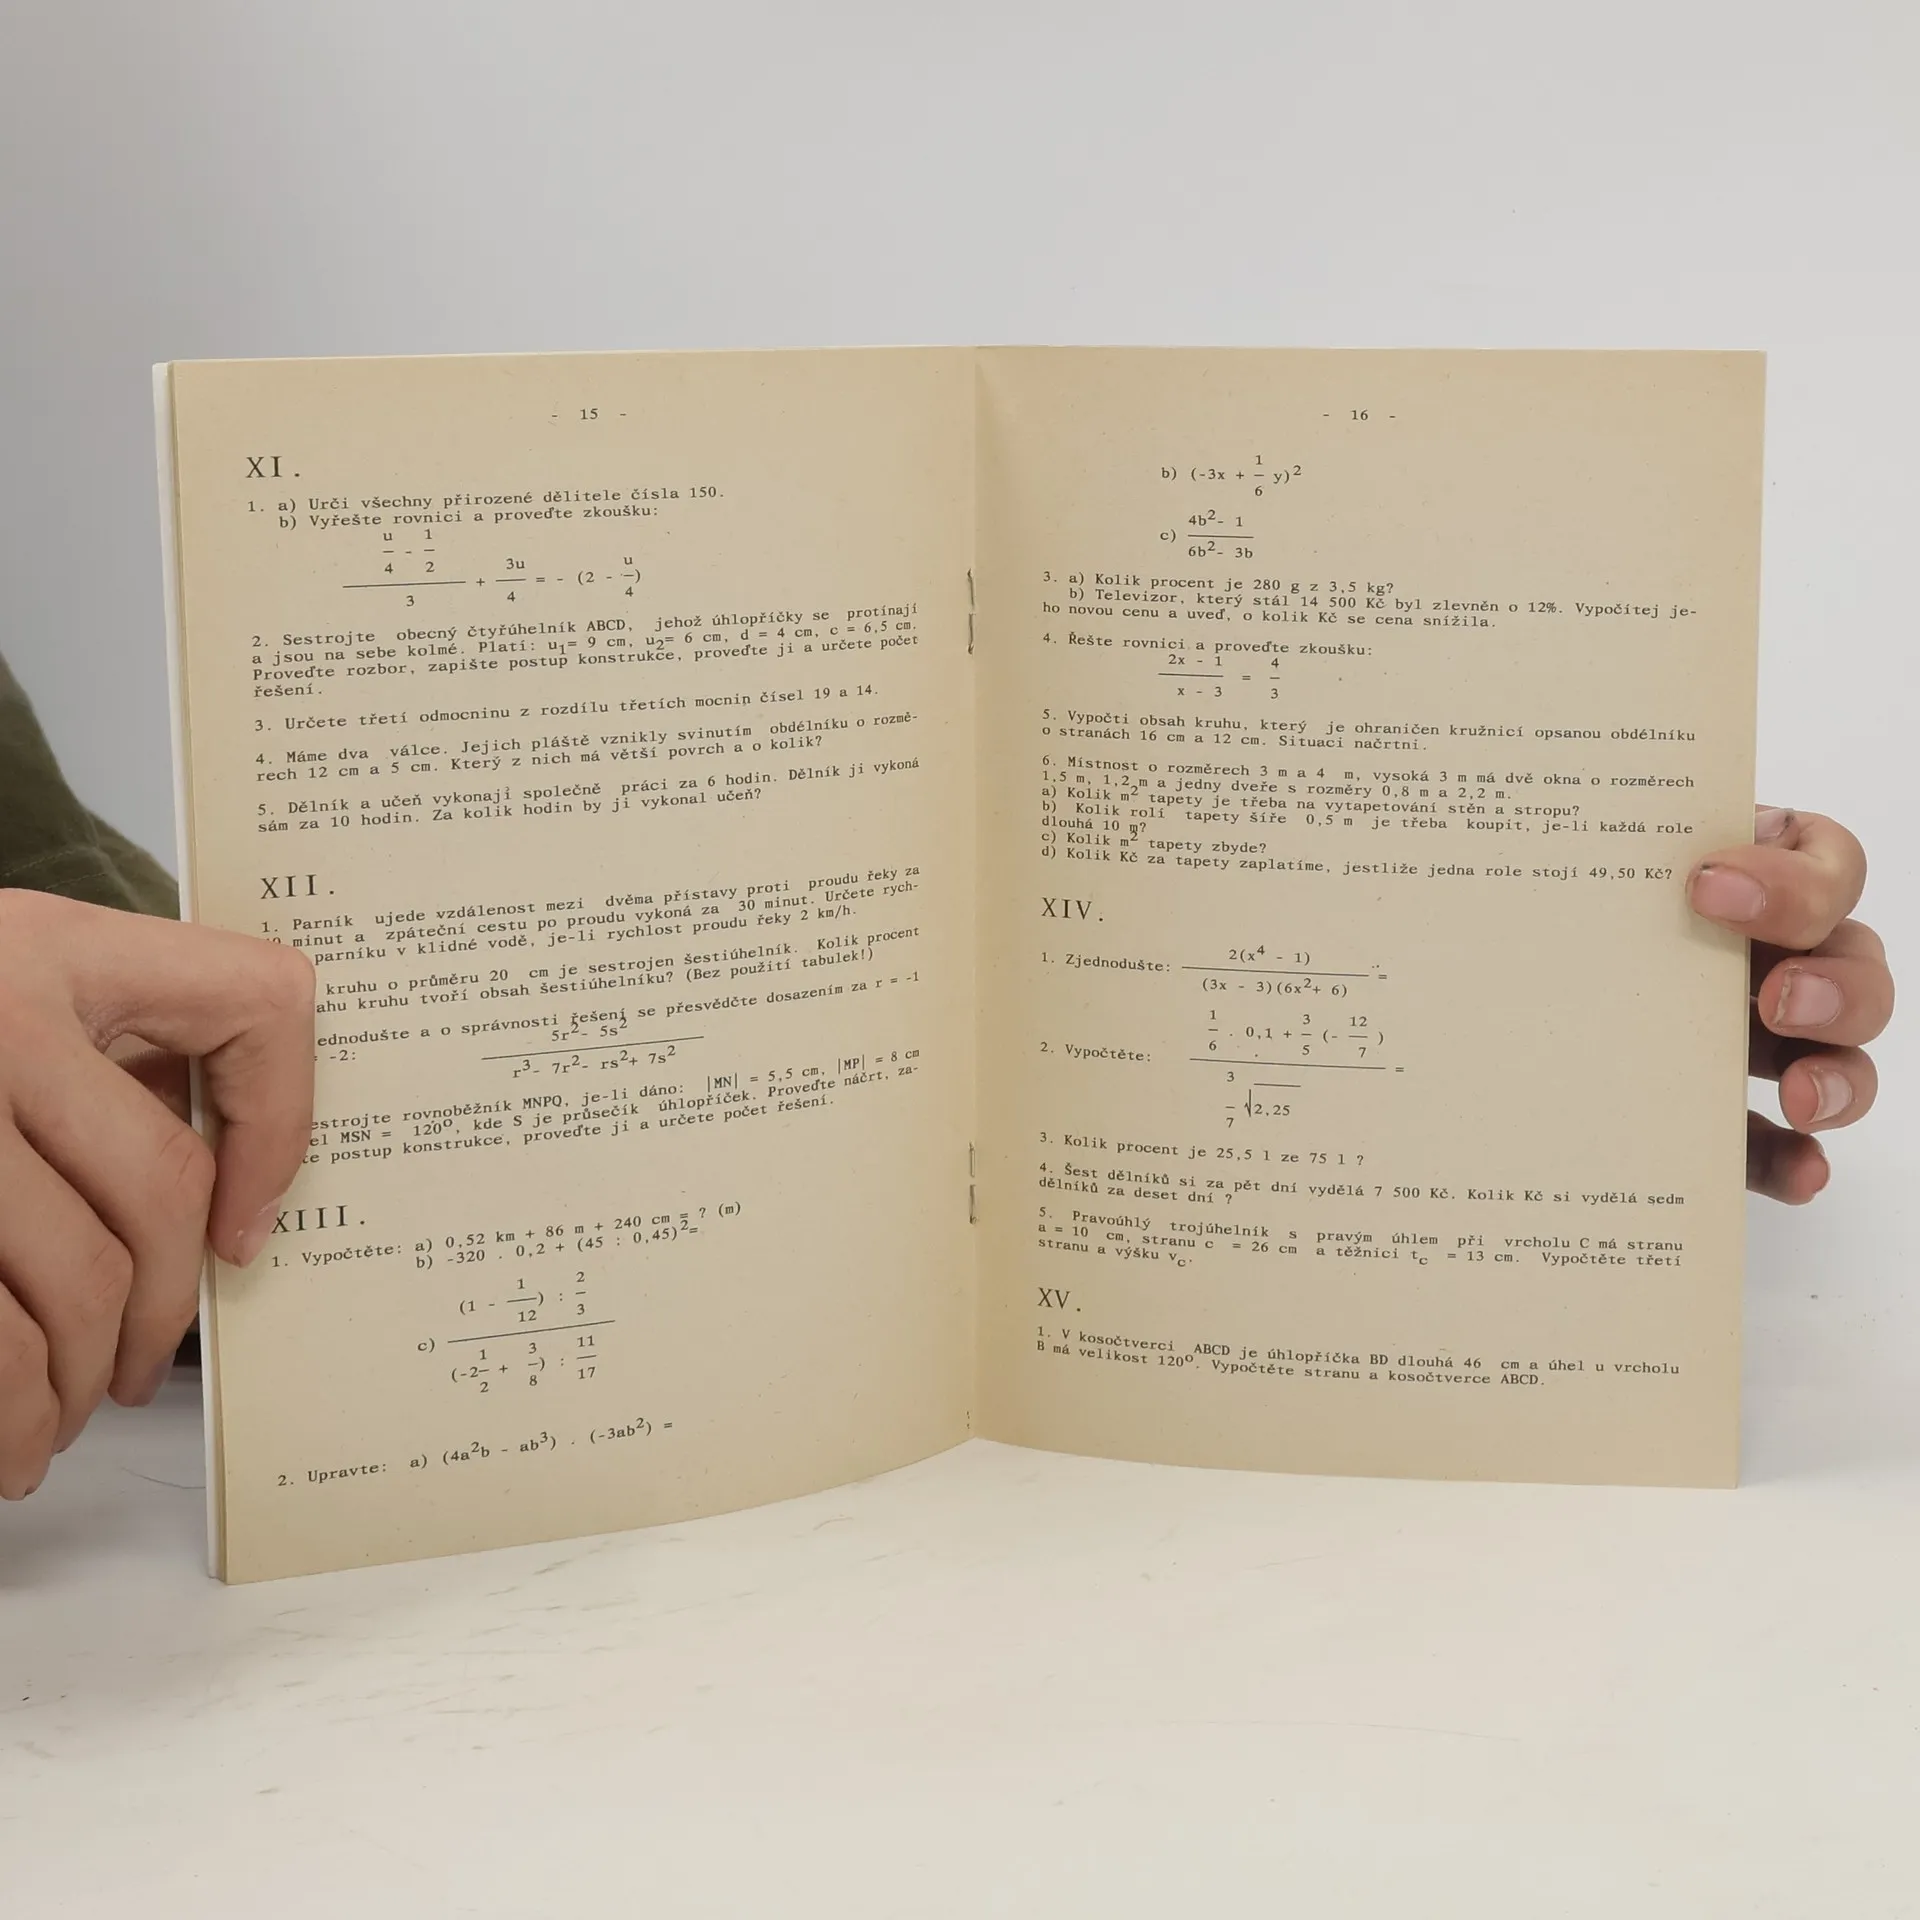 - 15 -
XI.
1. a) Urči všechny přirozené dělitele čísla 150.
b) Vyřešte rovnici a proveďte zkoušku:
u 1
— - —
4 2 3u u
——— + — = - (2 - —)
3 4 4
2. Sestrojte obecný čtyřúhelník ABCD, jehož úhlopříčky se protínají
a jsou na sebe kolmé. Platí: u₁= 9 cm, u₂= 6 cm, d = 4 cm, c = 6,5 cm.
Proveďte rozbor, zapište postup konstrukce, proveďte ji a určete počet
řešení.
3. Určete třetí odmocninu z rozdílu třetích mocnin čísel 19 a 14.
4. Máme dva válce. Jejich pláště vznikly svinutím obdélníku o rozmě-
rech 12 cm a 5 cm. Který z nich má větší povrch a o kolik?
5. Dělník a učeň vykonají společně práci za 6 hodin. Dělník ji vykoná
sám za 10 hodin. Za kolik hodin by ji vykonal učeň?
XII.
1. Parník ujede vzdálenost mezi dvěma přístavy proti proudu řeky za
minut a zpáteční cestu po proudu vykoná za 30 minut. Určete rych-
parníku v klidné vodě, je-li rychlost proudu řeky 2 km/h.
kruhu o průměru 20 cm je sestrojen šestiúhelník. Kolik procent
ahu kruhu tvoří obsah šestiúhelníku? (Bez použití tabulek!)
ednodušte a o správnosti řešení se přesvědčte dosazením za r = -1
= -2:
5r²- 5s²
———
r³- 7r²- rs²+ 7s²
estrojte rovnoběžník MNPQ, je-li dáno: |MN| = 5,5 cm, |MP| = 8 cm
el MSN = 120°, kde S je průsečík úhlopříček. Proveďte náčrt, za-
te postup konstrukce, proveďte ji a určete počet řešení.
XIII.
1. Vypočtěte: a) 0,52 km + 86 m + 240 cm = ? (m)
b) -320 . 0,2 + (45 : 0,45)²=
1 2
(1 - —) : —
12 3
c) ———
1 3 11
(-2— + —) : —
2 8 17
2. Upravte: a) (4a²b - ab³) . (-3ab²) =
- 16 -
1
b) (-3x + — y)²
6
4b²- 1
c) ———
6b²- 3b
3. a) Kolik procent je 280 g z 3,5 kg?
b) Televizor, který stál 14 500 Kč byl zlevněn o 12%. Vypočítej je-
ho novou cenu a uveď, o kolik Kč se cena snížila.
4. Řešte rovnici a proveďte zkoušku:
2x - 1 4
——— = —
x - 3 3
5. Vypočti obsah kruhu, který je ohraničen kružnicí opsanou obdélníku
o stranách 16 cm a 12 cm. Situaci načrtni.
6. Místnost o rozměrech 3 m a 4 m, vysoká 3 m má dvě okna o rozměrech
1,5 m, 1,2 m a jedny dveře s rozměry 0,8 m a 2,2 m.
a) Kolik m² tapety je třeba na vytapetování stěn a stropu?
b) Kolik rolí tapety šíře 0,5 m je třeba koupit, je-li každá role
dlouhá 10 m?
c) Kolik m² tapety zbyde?
d) Kolik Kč za tapety zaplatíme, jestliže jedna role stojí 49,50 Kč?
XIV.
2(x⁴ - 1)
1. Zjednodušte: ——— =
(3x - 3)(6x²+ 6)
1 3 12
— . 0,1 + — (- — )
6 5 7
2. Vypočtěte: ——— =
3
— √2,25
7
3. Kolik procent je 25,5 l ze 75 l ?
4. Šest dělníků si za pět dní vydělá 7 500 Kč. Kolik Kč si vydělá sedm
dělníků za deset dní ?
5. Pravoúhlý trojúhelník s pravým úhlem při vrcholu C má stranu
a = 10 cm, stranu c = 26 cm a těžnici t_c = 13 cm. Vypočtěte třetí
stranu a výšku v_c.
XV.
1. V kosočtverci ABCD je úhlopříčka BD dlouhá 46 cm a úhel u vrcholu
B má velikost 120°. Vypočtěte stranu a kosočtverce ABCD.